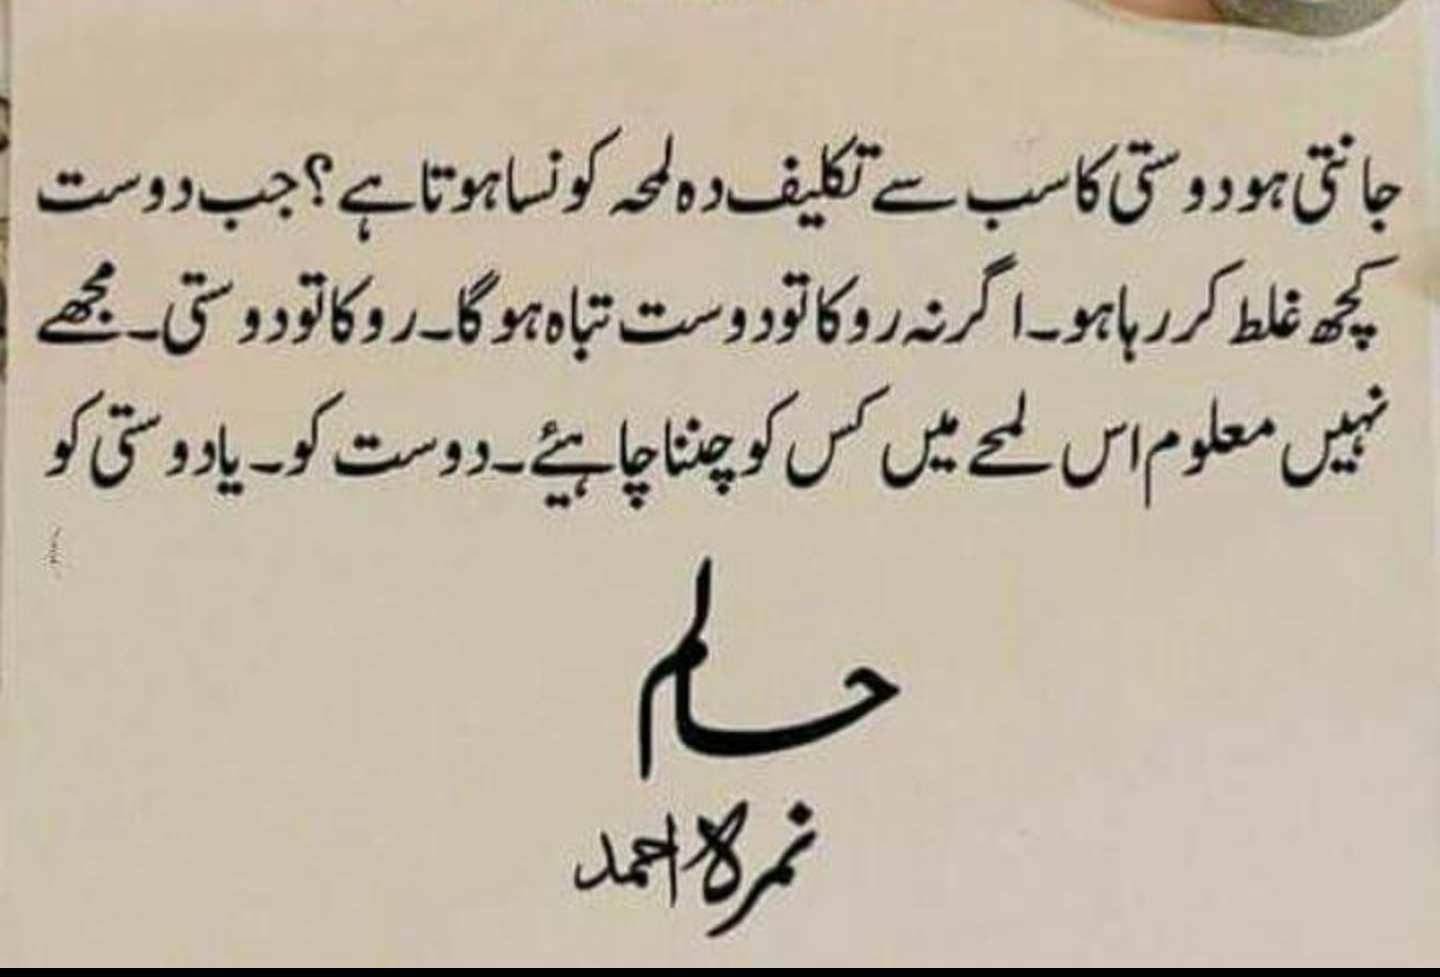 جانتی ہو دوستی کا سب سے تکلیف دہ لمحہ کونسا ہوتا ہے؟ جب دوست
کچھ غلط کر رہا ہو۔ اگر نہ روکا تو دوست تباہ ہو گا۔ روکا تو دوستی۔ مجھے
نہیں معلوم اس لمحے میں کس کو چننا چاہیئے۔ دوست کو۔ یا دوستی کو
حالم
نمرہ احمد